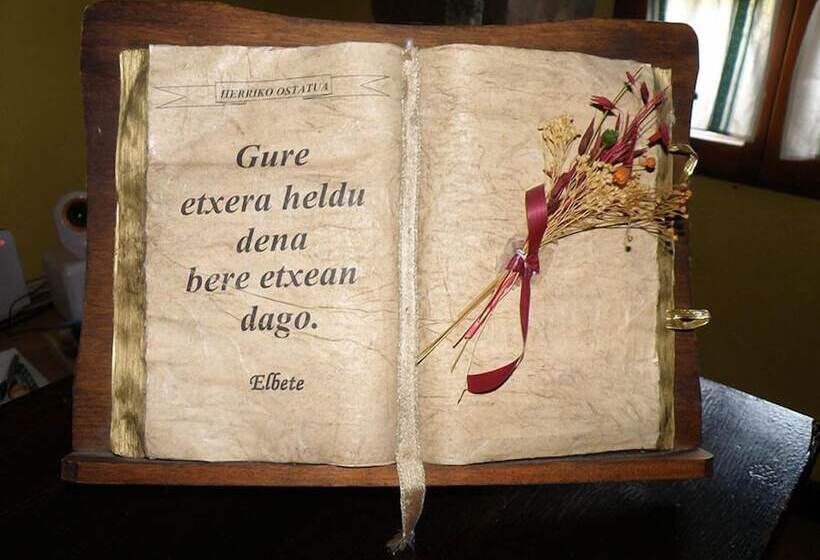 HERRIKO OSTATUA
Gure
etxera heldu
dena
bere etxean
dago.
Elbete